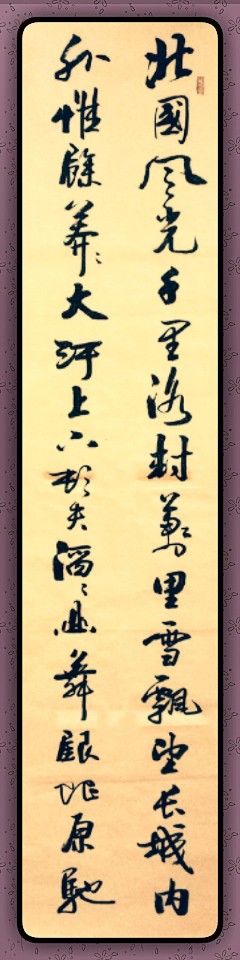 北國风光千里冰封萬里雪飄望长城内
外惟餘莽々大河上下頓失滔々山舞銀蛇原馳